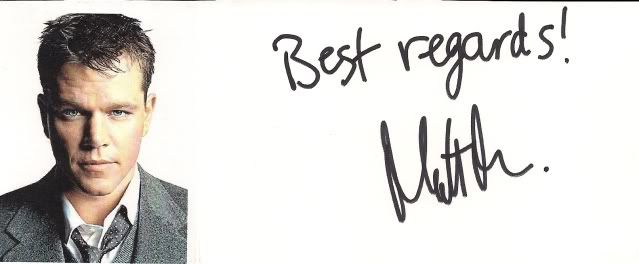 Best regards!
Matt